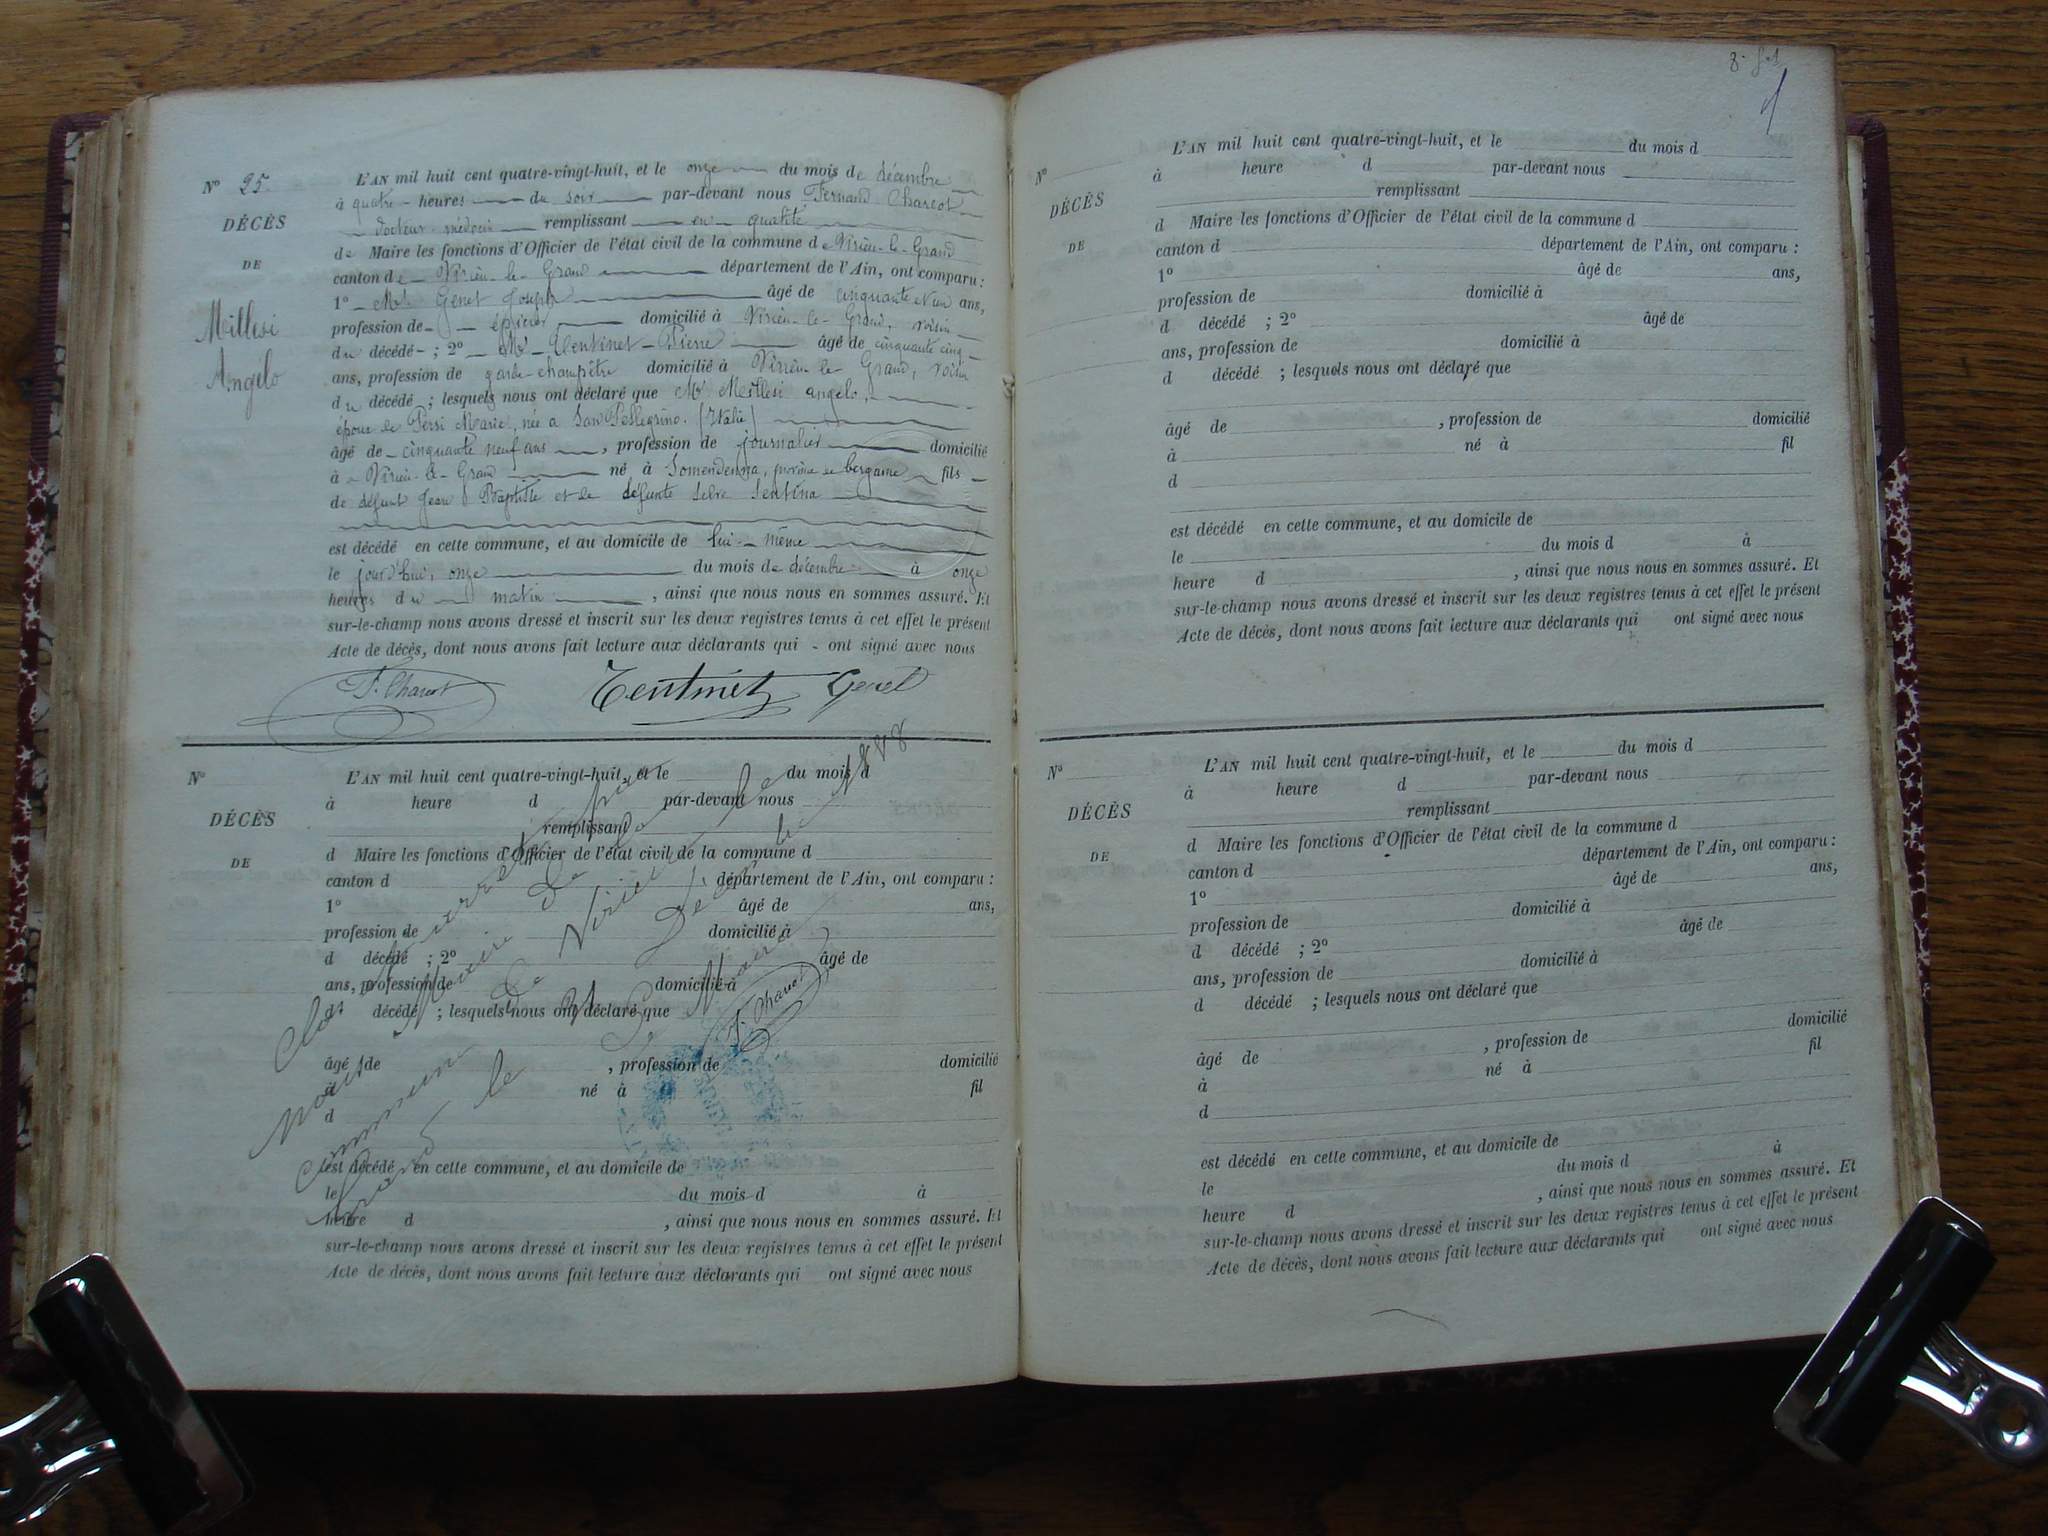 N° 25.
DÉCÈS
DE
Millesi
Angélo
L'AN mil huit cent quatre-vingt-huit, et le onze du mois de décembre
à quatre heures du soir par-devant nous Fernand Charcot
docteur médecin remplissant en qualité
de Maire les fonctions d'Officier de l'état civil de la commune de Virieu-le-Grand
canton de Virieu-le-Grand département de l'Ain, ont comparu :
1° Mr Genet Joseph âgé de cinquante et un ans,
profession de épicier domicilié à Virieu-le-Grand, voisin
du décédé ; 2° Mr Tentinet Pierre âgé de cinquante cinq
ans, profession de garde-champêtre domicilié à Virieu-le-Grand, voisin
du décédé ; lesquels nous ont déclaré que Mr Millesi angelo,
époux de Persi Marie, née a San Pellegrino. (Italie)
âgé de cinquante neuf ans, profession de journalier domicilié
à Virieu-le-Grand né à Somendenna, province de bergame fils
de défunt Jean Baptiste et de défunte Selva Sentina
est décédé en cette commune, et au domicile de lui-même
le jourd'hui, onze du mois de décembre à onze
heures du matin, ainsi que nous nous en sommes assuré. Et
sur-le-champ nous avons dressé et inscrit sur les deux registres tenus à cet effet le présent
Acte de décès, dont nous avons fait lecture aux déclarants qui ont signé avec nous
F. Charcot Tentinet Genet
N°
DÉCÈS
DE
L'AN mil huit cent quatre-vingt-huit, et le du mois d
à heure d par-devant nous
remplissant
d Maire les fonctions d'Officier de l'état civil de la commune d
canton d département de l'Ain, ont comparu :
1° âgé de ans,
profession de domicilié à
d décédé ; 2° âgé de
ans, profession de domicilié à
d décédé ; lesquels nous ont déclaré que
âgé de , profession de domicilié
à né à fil
d
est décédé en cette commune, et au domicile de
le du mois d à
heure d , ainsi que nous nous en sommes assuré. Et
sur-le-champ nous avons dressé et inscrit sur les deux registres tenus à cet effet le présent
Acte de décès, dont nous avons fait lecture aux déclarants qui ont signé avec nous
Clos et arrêté par
nous Maire de la
commune de Virieu le
Grand le 31 Décembre 1888
Le Maire
F. Charcot
N°
DÉCÈS
DE
L'AN mil huit cent quatre-vingt-huit, et le du mois d
à heure d par-devant nous
remplissant
d Maire les fonctions d'Officier de l'état civil de la commune d
canton d département de l'Ain, ont comparu :
1° âgé de ans,
profession de domicilié à
d décédé ; 2° âgé de
ans, profession de domicilié à
d décédé ; lesquels nous ont déclaré que
âgé de , profession de domicilié
à né à fil
d
est décédé en cette commune, et au domicile de
le du mois d à
heure d , ainsi que nous nous en sommes assuré. Et
sur-le-champ nous avons dressé et inscrit sur les deux registres tenus à cet effet le présent
Acte de décès, dont nous avons fait lecture aux déclarants qui ont signé avec nous
N°
DÉCÈS
DE
L'AN mil huit cent quatre-vingt-huit, et le du mois d
à heure d par-devant nous
remplissant
d Maire les fonctions d'Officier de l'état civil de la commune d
canton d département de l'Ain, ont comparu :
1° âgé de ans,
profession de domicilié à
d décédé ; 2° âgé de
ans, profession de domicilié à
d décédé ; lesquels nous ont déclaré que
âgé de , profession de domicilié
à né à fil
d
est décédé en cette commune, et au domicile de
le du mois d à
heure d , ainsi que nous nous en sommes assuré. Et
sur-le-champ nous avons dressé et inscrit sur les deux registres tenus à cet effet le présent
Acte de décès, dont nous avons fait lecture aux déclarants qui ont signé avec nous